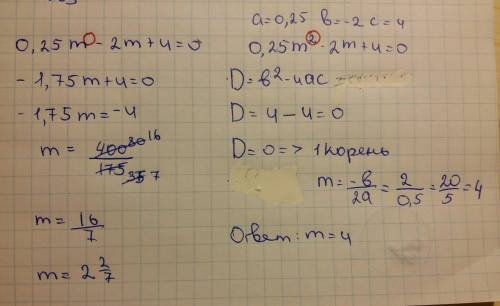 0,25m - 2m + 4 = 0
- 1,75m + 4 = 0
- 1,75m = -4
m = 400 80 16 / 175 35 7
m = 16/7
m = 2 2/7
a = 0,25 в = -2 c = 4
0,25m² - 2m + 4 = 0
D = в² - 4ac
D = 4 - 4 = 0
D = 0 => 1 корень
m = -в/2a = 2/0,5 = 20/5 = 4
Ответ: m = 4